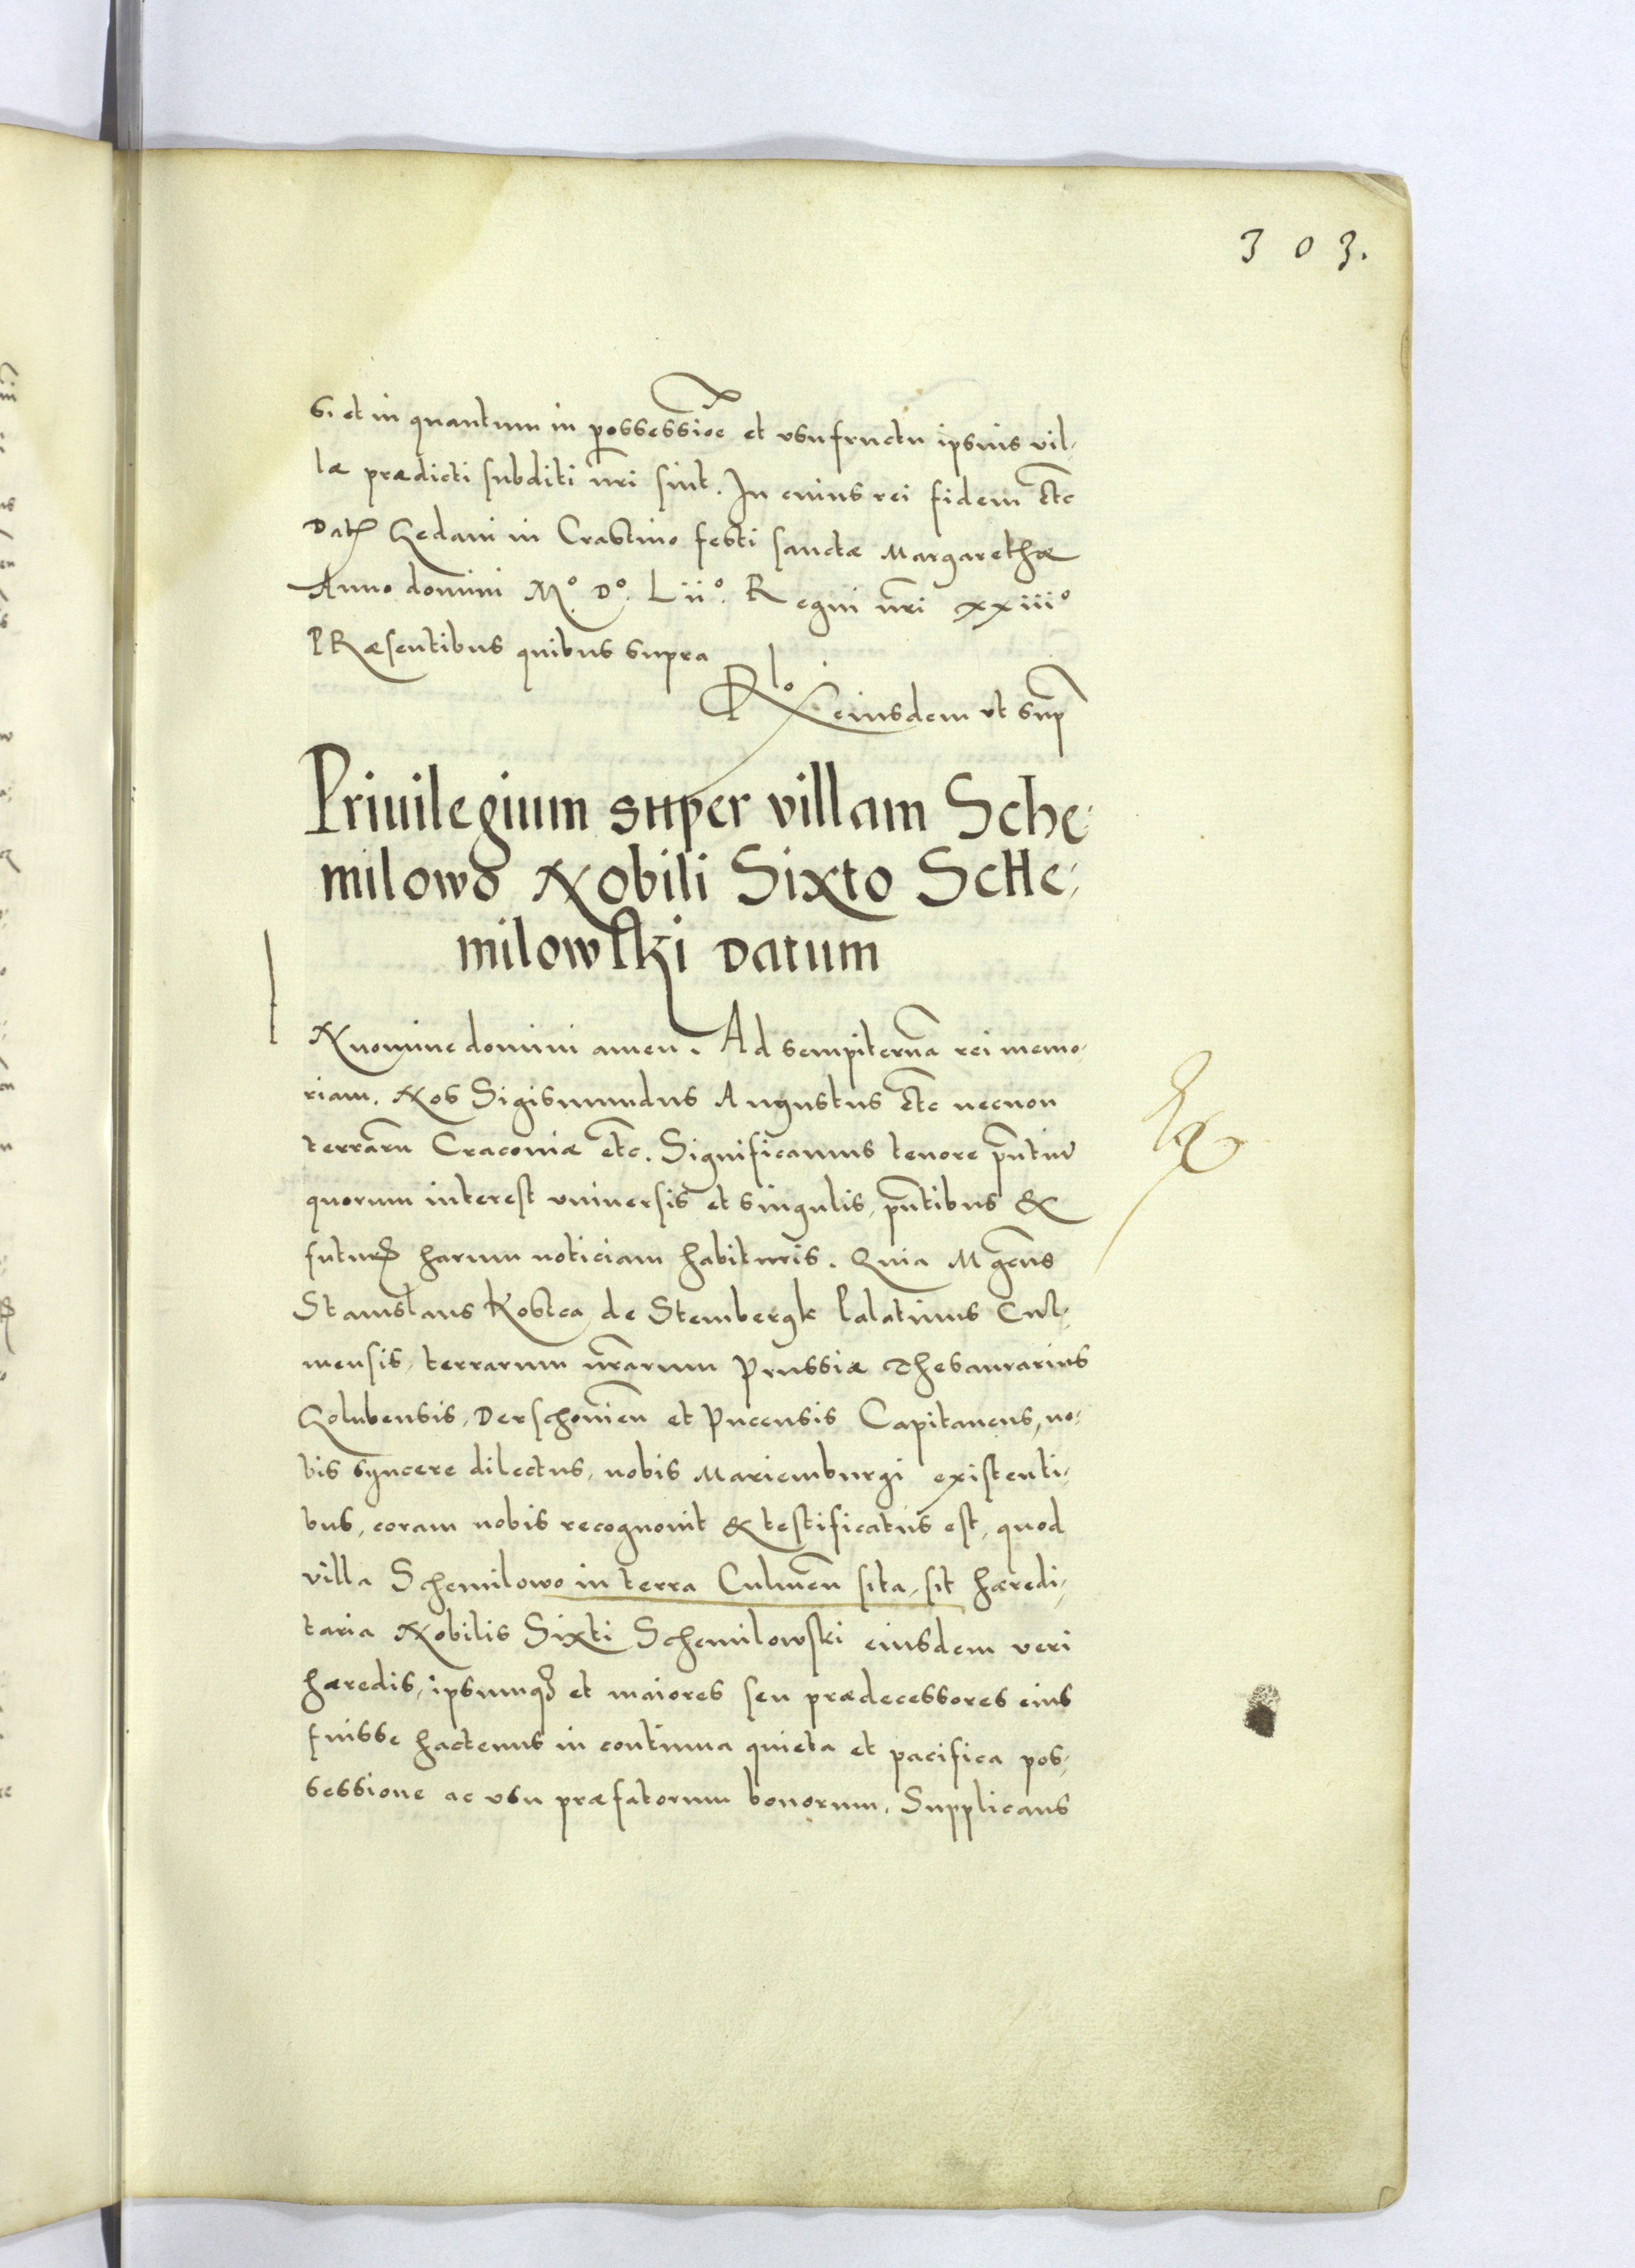 303.
Si et in quantum in possessioe et vsufructu ipsius vil-
læ prædicti subditi nri sint. In cuius rei fidem etc
Dat Gedani in Crastino festi sanctæ Margarethæ
Anno domini M° D° Lii° Regni nri xxiii°
PRæsentibus quibus supra
Rlo eiusdem vt sup
Priuilegium super villam Sche-
milowo Nobili Sixto Sche-
milowski Datum
IN nomine domini amen. Ad sempiterna rei memo-
riam. Nos Sigismundus Augustus etc necnon
terraru Cracouiæ etc. Significamus tenore pntiu
quorum interest vniuersis et singulis, pntibus &
futuris harum noticiam habituris. Quia Mgcus
Stanislaus Kostca de Stembergk Palatinus Cul-
mensis, terrarum nrarum Prussiæ Thesaurarius
Golubensis, Derschouien et Pucensis Capitaneus, no-
bis syncere dilectus, nobis Mariemburgi existenti-
bus, coram nobis recognouit & testificatus est, quod
villa Schemilowo in terra Culmen sita, sit hæredi-
taria Nobilis Sixti Schemilowski eiusdem veri
hæredis, ipsumq et maiores seu prædecessores eius
fuisse hactenus in continua quieta et pacifica pos-
sessione ac vsu præfatorum bonorum, Supplicans